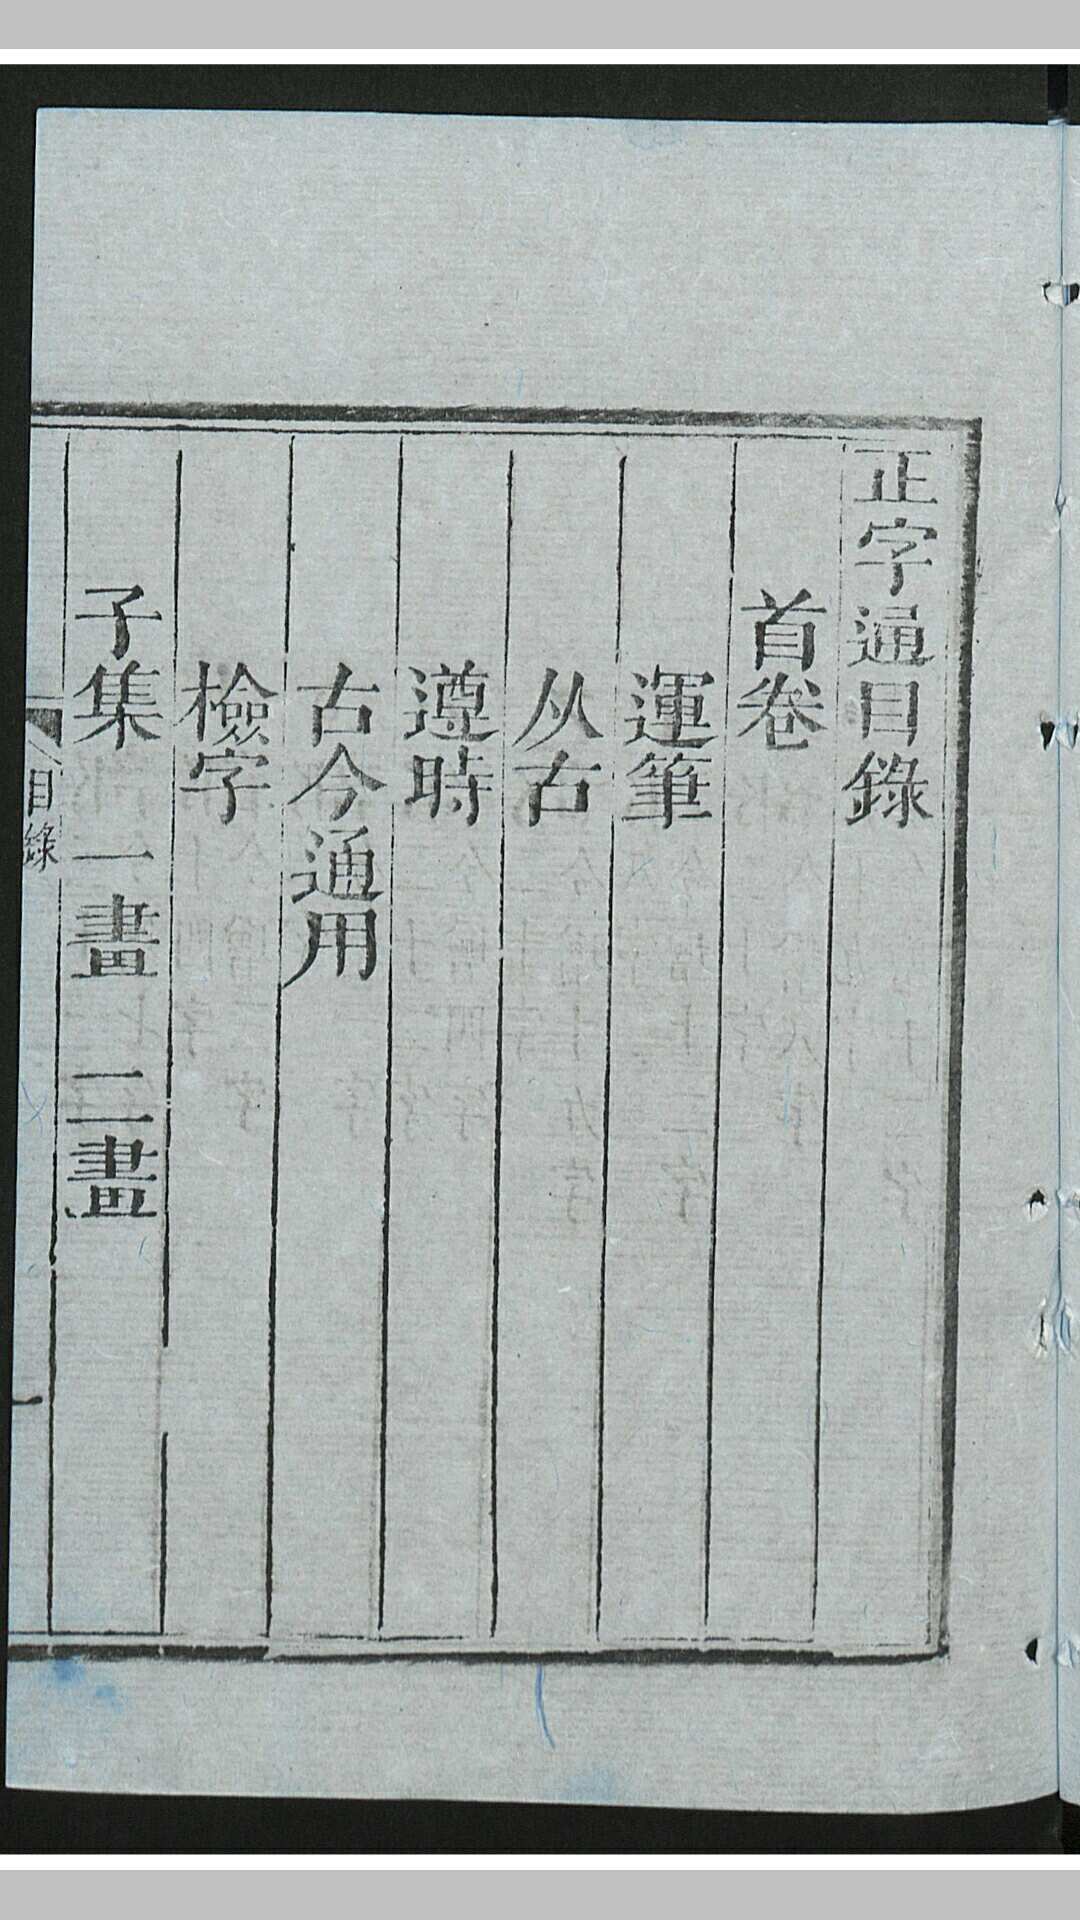 正字通目錄
首卷
運筆
从古
遵時
古今通用
檢字
子集 一畫 二畫
目錄
一